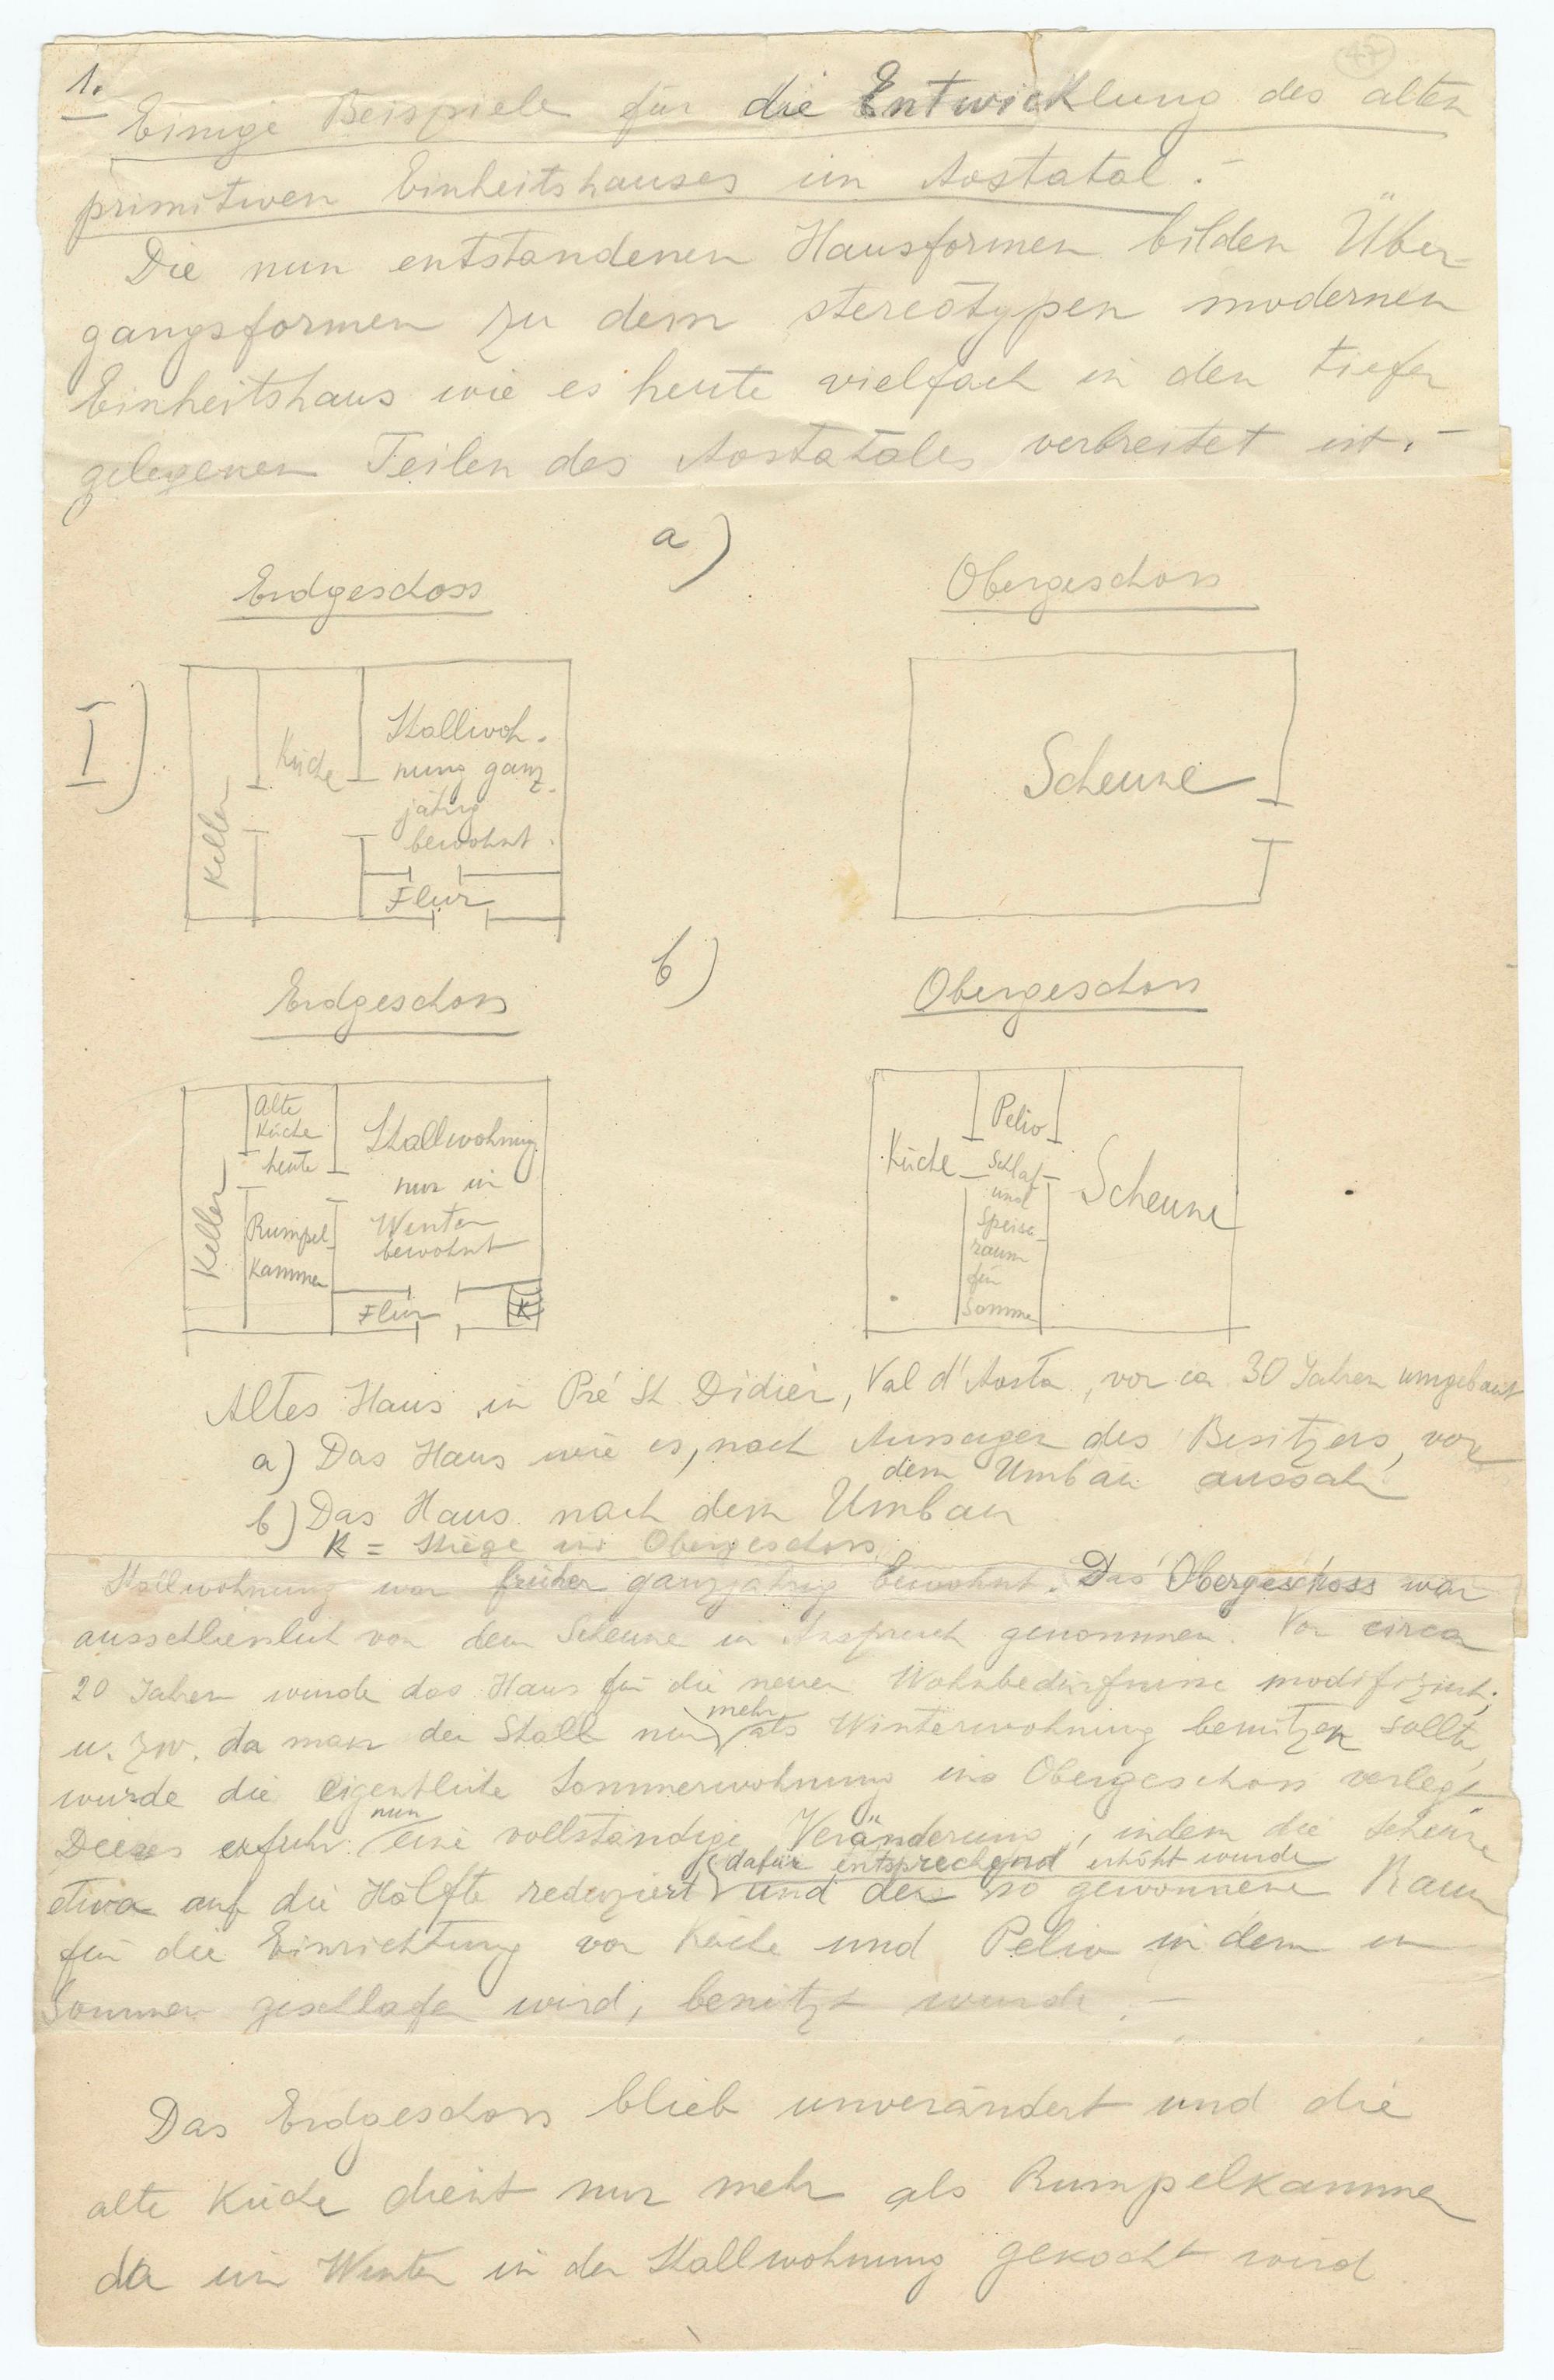 47
1.
Einige Beispiele für die Entwicklung des alten
primitiven Einheitshauses im Aostatal.-
Die nun entstandenen Hausformen bilden Über-
gangsformen zu dem stereotypen modernen
Einheitshaus wie es heute vielfach in den tiefer
gelegenen Teilen des Aostatales verbreitet ist.-
a)
Erdgeschoss
Obergeschoss
I)
Keller
Küche
Stallwoh-
nung ganz-
jährig
bewohnt.
Flur
Scheune
b)
Erdgeschoss
Obergeschoss
Keller
Alte
Küche
heute
Rumpel-
kammer
Stallwohnung
nur im
Winter
bewohnt
Flur
K
Küche
Pelio
Schlaf-
und
Speise-
raum
für
Sommer
Scheune
Altes Haus in Pré St. Didier, Val d'Aosta, vor ca 30 Jahren umgebaut
a) Das Haus wie es, nach Aussagen des Besitzers, vor
dem Umbau aussah
b) Das Haus nach dem Umbau
K = Stiege ins Obergeschoss
Stallwohnung war früher ganzjährig bewohnt. Das Obergeschoss war
ausschliesslich von der Scheune in Anspruch genommen. Vor circa
20 Jahren wurde das Haus für die neuen Wohnbedürfnisse modifiziert;
u. zw. da man den Stall nur mehr als Winterwohnung benützen sollte,
wurde die eigentliche Sommerwohnung ins Obergeschoss verlegt
Dieses erfuhr nun eine vollständige Veränderung, indem die Scheune
etwa auf die Hälfte reduziert (dafür entsprechend erhöht wurde
und der so gewonnene Raum
für die Einrichtung von Küche und Pelio in dem im
Sommer geschlafen wird, benützt wurde.-
Das Erdgeschoss blieb unverändert und die
alte Küche dient nur mehr als Rumpelkammer
da im Winter in der Stallwohnung gekocht wird